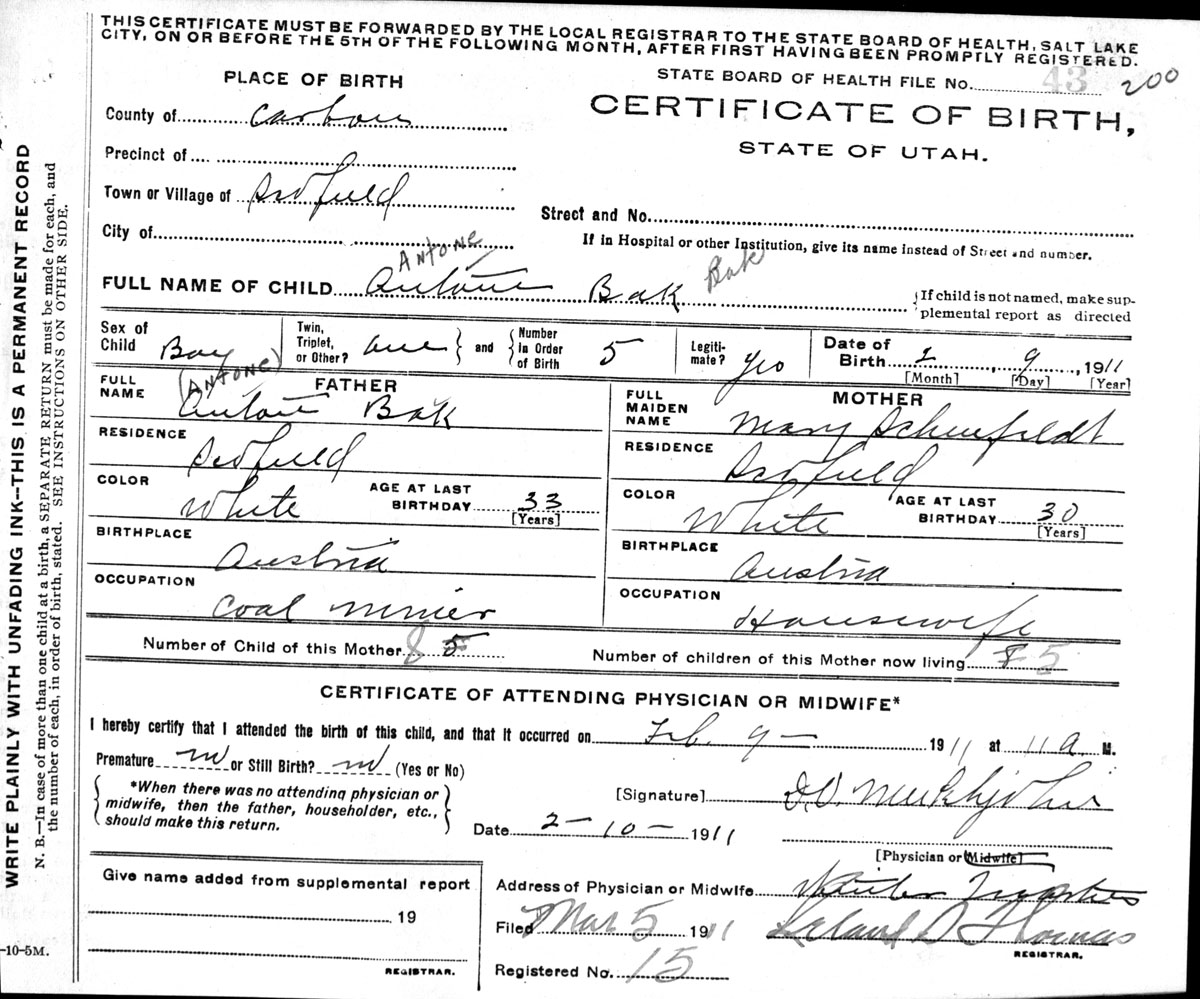 THIS CERTIFICATE MUST BE FORWARDED BY THE LOCAL REGISTRAR TO THE STATE BOARD OF HEALTH, SALT LAKE
CITY, ON OR BEFORE THE 5TH OF THE FOLLOWING MONTH, AFTER FIRST HAVING BEEN PROMPTLY REGISTERED.
PLACE OF BIRTH
STATE BOARD OF HEALTH FILE No. 43 200
CERTIFICATE OF BIRTH,
STATE OF UTAH.
County of Carbon
Precinct of
Town or Village of Scofield
Street and No.
City of
If in Hospital or other Institution, give its name instead of Street and number.
Antone Bak
FULL NAME OF CHILD Antone Bak
{If child is not named, make sup-
plemental report as directed
Sex of Child Boy
Twin, Triplet, or Other? one } and { Number in Order of Birth 5
Legiti-mate? Yes
Date of Birth 2, 9, 1911
[Month] [Day] [Year]
FATHER
FULL NAME (Antone) Antone Bak
MOTHER
FULL MAIDEN NAME Mary
RESIDENCE Scofield
RESIDENCE Scofield
COLOR White
AGE AT LAST BIRTHDAY 33 [Years]
COLOR White
AGE AT LAST BIRTHDAY 30 [Years]
BIRTHPLACE Austria
BIRTHPLACE Austria
OCCUPATION Coal miner
OCCUPATION Housewife
Number of Child of this Mother 8 5
Number of children of this Mother now living 5
CERTIFICATE OF ATTENDING PHYSICIAN OR MIDWIFE*
I hereby certify that I attended the birth of this child, and that it occurred on Feb. 9 — 1911 at 11 a M.
Premature no or Still Birth? no (Yes or No)
{ *When there was no attending physician or
midwife, then the father, householder, etc.,
should make this return. }
[Signature]
Date 2 - 10 - 1911
[Physician or Midwife]
Give name added from supplemental report
19
REGISTRAR.
Address of Physician or Midwife Winter Quarters
Filed Mar 5 1911 Leland D Thomas
REGISTRAR.
Registered No. 15
-10-5M.
WRITE PLAINLY WITH UNFADING INK—THIS IS A PERMANENT RECORD
N. B.—In case of more than one child at a birth, a SEPARATE RETURN must be made for each, and
the number of each, in order of birth, stated. SEE INSTRUCTIONS ON OTHER SIDE.